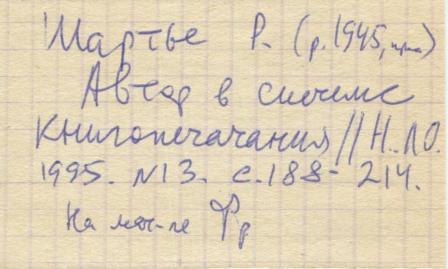 Шартье Р. (р. 1945,
Автор в системе
книгопечатания // Н.ЛО.
1995. №13. с. 188-214.
На мат-ле Фр